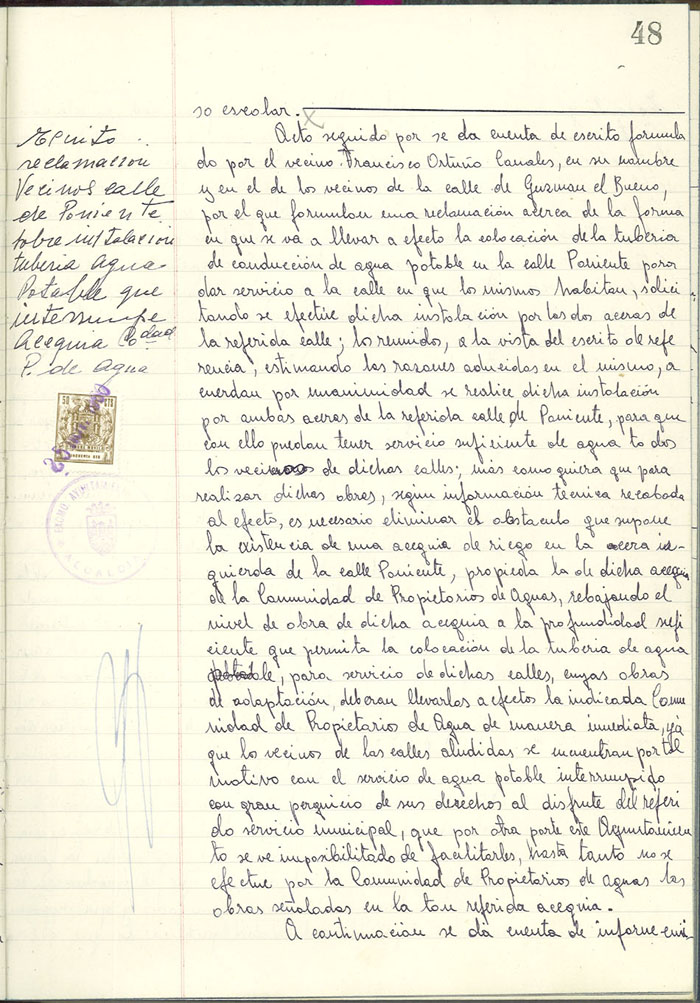 48
so escolar.
Acto seguido por se da cuenta de escrito formula
do por el vecino Francisco Ortuño Canales, en su nombre
y en el de los vecinos de la calle de Guzman el Bueno,
por el que formulan una reclamación acerca de la forma
en que se vá a llevar a efecto la colocación de la tuberia
de conducción de agua potable en la calle Poniente para
dar servicio a la calle en que los mismos habitan, solici
tando se efectue dicha instalación por las dos aceras de
la referida calle; los reunidos, a la vista del escrito de refe
rencia, estimando las razones aducidas en el mismo, a
cuerdan por unanimidad se realice dicha instalación
por ambas aceras de la referida calle de Poniente, para que
con ello puedan tener servicio suficiente de agua todos
los vecinos de dichas calles; más como quiera que para
realizar dichas obres, según información tecnica recabada
al efecto, es necesario eliminar el obstaculo que supone
la existencia de una acequia de riego en la acera iz-
quierda de la calle Poniente, propieda la de dicha acequia
de la Comunidad de Propietarios de Aguas, rebajando el
nivel de obra de dicha acequia a la profundidad sufi
ciente que permita la colocación de la tuberia de agua
potable, para servicio de dichas calles, cuyas obras
de adaptación, deberan llevarlas a efecto la indicada Comu
nidad de Propietarios de Agua de manera inmediata, yá
que los vecinos de las calles aludidas se encuentran por tal
motivo con el servicio de agua potable interrumpido
con gran perjuicio de sus derechos al disfrute del referi
do servicio municipal, que por otra parte este Ayuntamien
to se ve imposibilitado de facilitarles, hasta tanto no se
efectue por la Comunidad de Propietarios de aguas las
obras señaladas en la tan referida acequia.
A continuacion se dá cuenta de informe emi-
Escrito
reclamacion
Vecinos calle
de Poniente
sobre instalacion
tuberia agua
Potable que
interrumpe
Acequia Codad
P. de agua
50 PTS
ALCALDIA